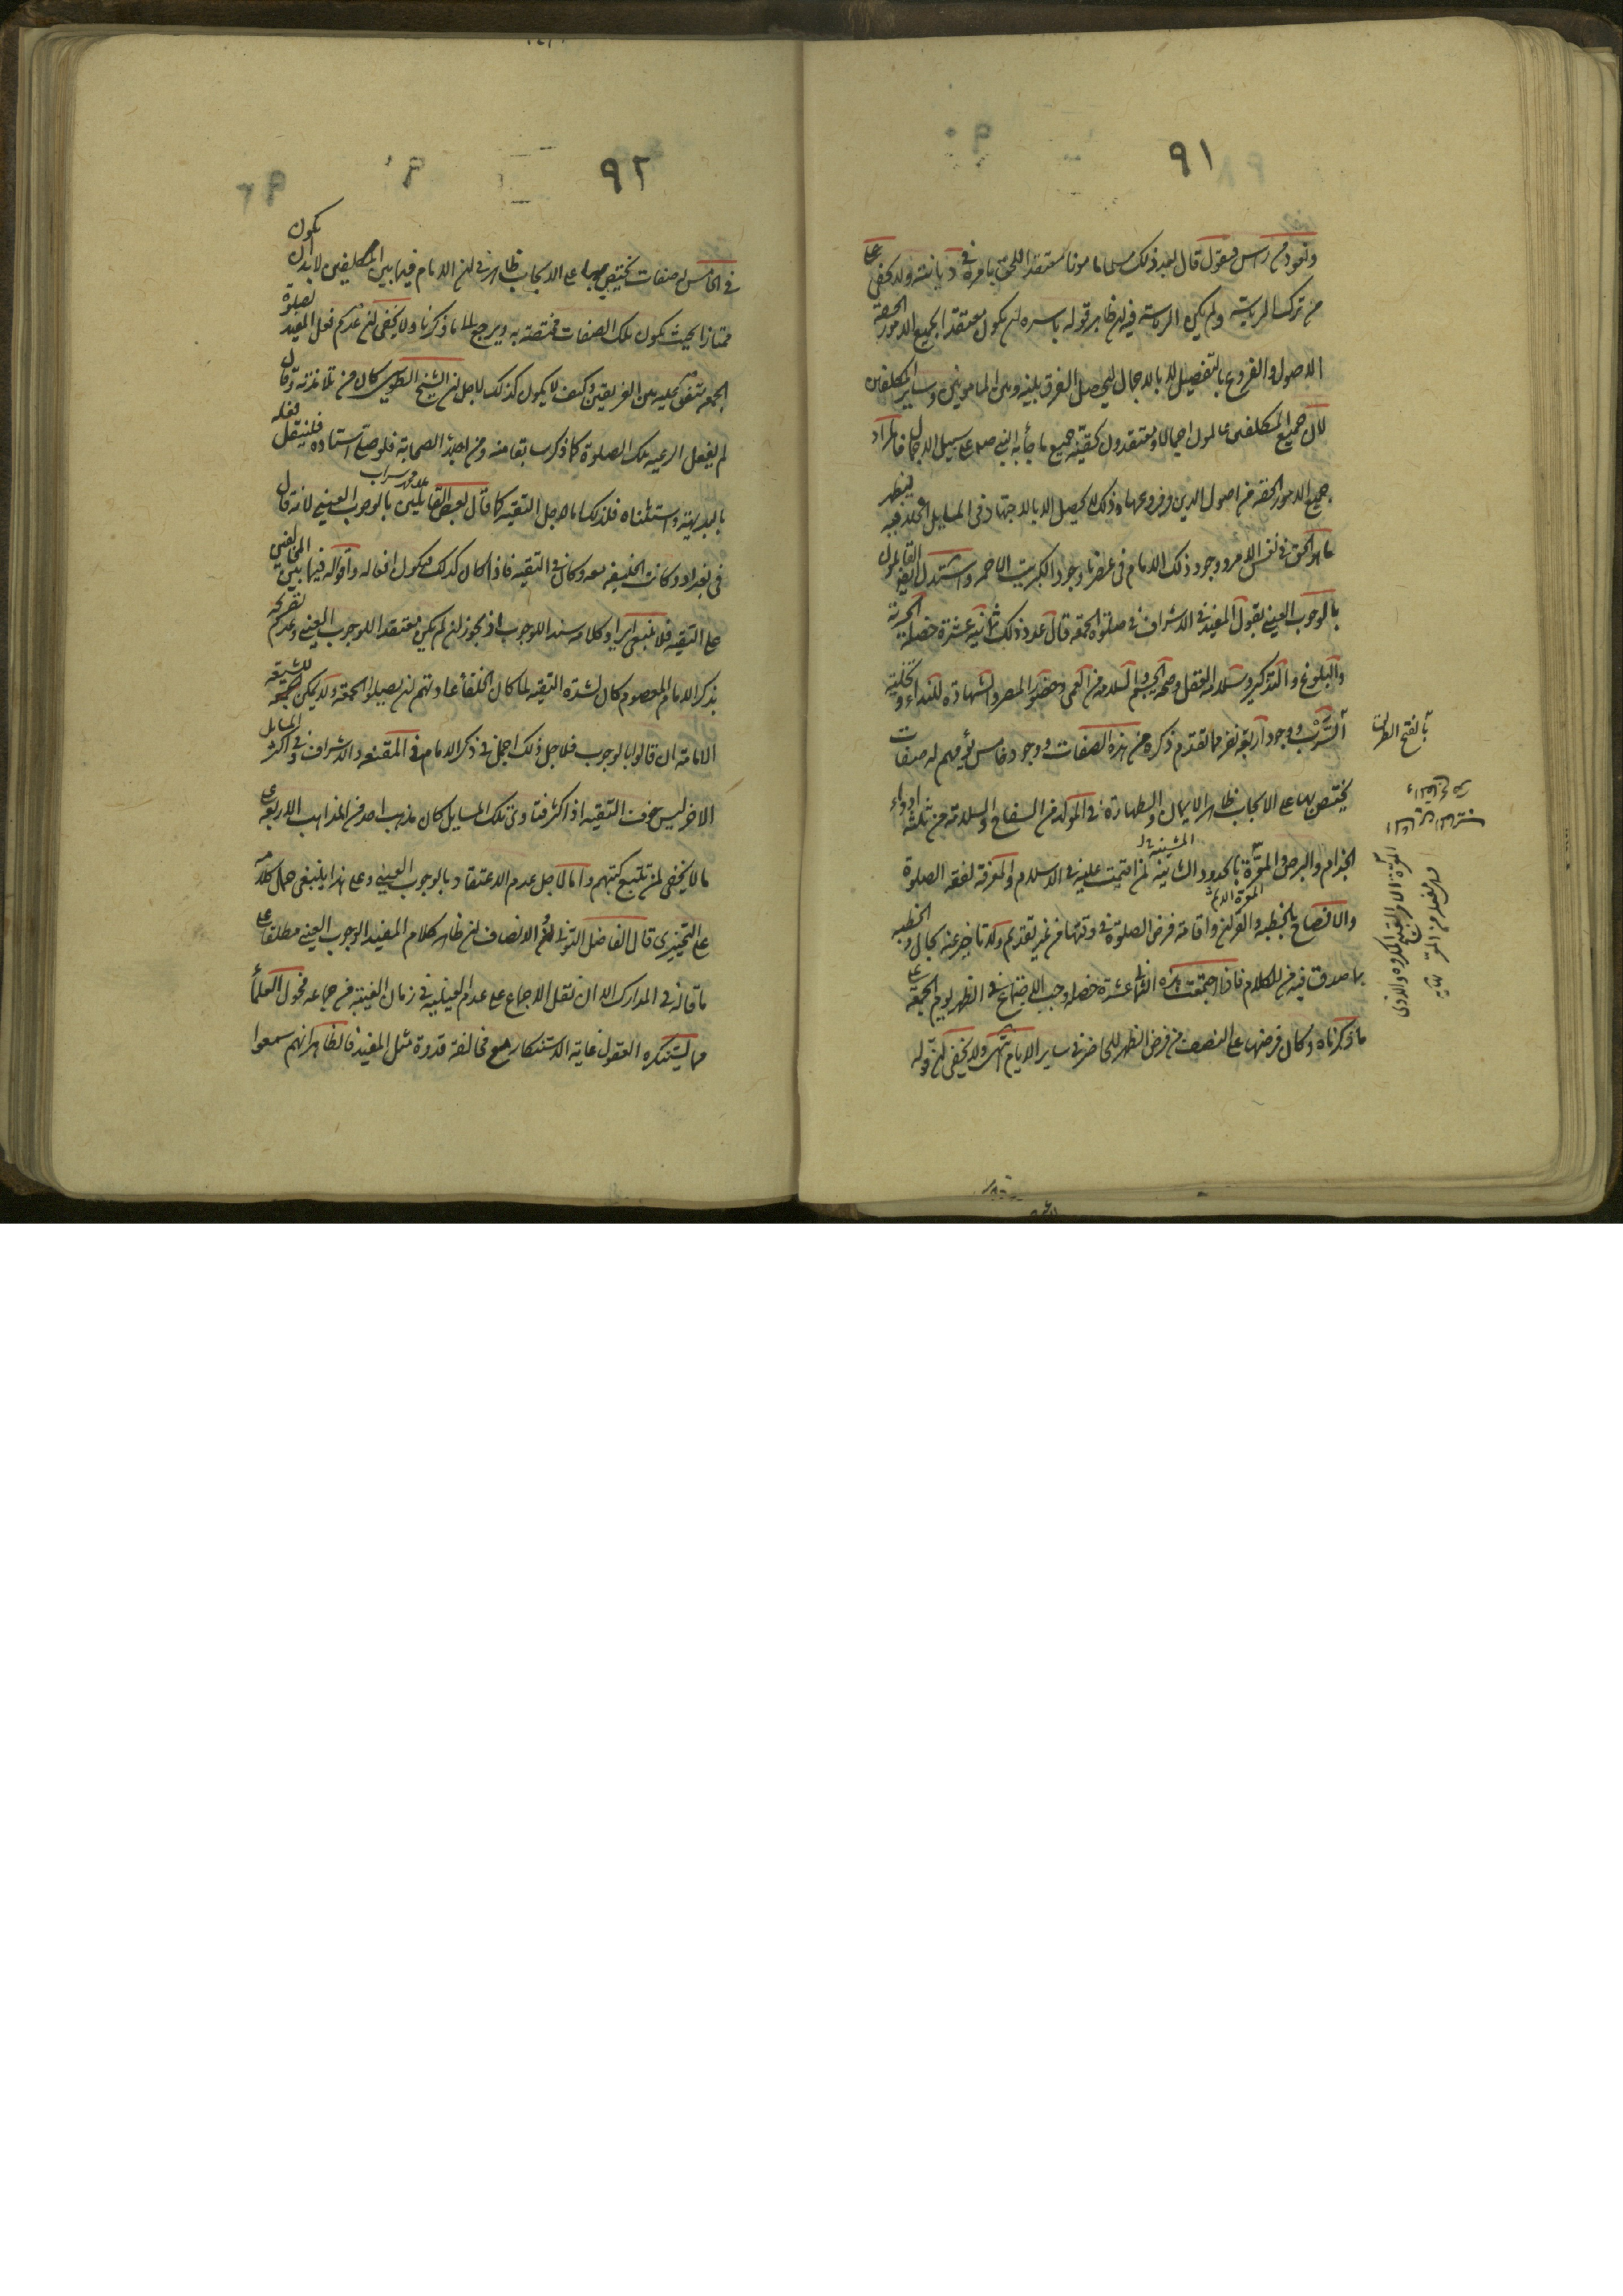 ٩١
ونموذ من رأس فنقول قال بعد ذلك مسلما مامونا معتقدا للحق باسره في ديانته ولا يخفى على
من ترك الريبة ولم يكن الريبة فيه ان ظاهر قوله باسره ان يكون معتقدا بجميع الامور الحقة
الاصول والفروع بالتفصيل لا بالاجمال ليحصل الفرق بينه وبين المامومين وساير المكلفين
لان جميع المكلفين عالمون اجمالا ومعتقدون بحقية جميع ما جاء به النبي صلى على سبيل الاجمال فالمراد
جميع الامور الحقة من اصول الدين وفروعها وذلك لا يحصل الا بالاجتهاد في المسايل الخلافية ليظهر
ما هو الحق في نفس الامر ووجود ذلك الامام في عصرنا وجود الكبريت الاحمر واستدل ايضا القايلون
بالوجوب العيني بقول المفيد في الاشراف في صلوة الجمعة قال عدد ذلك ثمانية عشرة خصلة الحرية
والبلوغ والتذكير وسلامة العقل وصحة الجسم والسلامة من العمى وحضور المصر والشهادة للنداء وتخلية
السرب ووجود اربعة نفر مما تقدم ذكره من هذه الصفات ووجود خامس يؤمهم له صفات
يختص بها على الايجاب ظاهر الايمان والطهارة في المولد من السفاح والسلامة من ثلثة ادواء
الجذام والبرص والمعرة بالحدود الشاينة لمن اقيمت عليه في الاسلام والمعرفة بفقه الصلوة
المشينة خ ل
المعرة الاثم
والافصاح بالخطبة والقران واقامة فرض الصلوة في وقتها من غير تقديم ولا تاخير عنه بحال والخطبة
بما صدق فيه من الكلام فاذا اجتمعت هذه الثمانى عشرة خصلة وجب الاجتماع في الظهر يوم الجمعة على
ما ذكرناه وكان فرضها على النصف من فرض الظهر للحاضر في ساير الايام انتهى ولا يخفى ان قوله
بالفتح الطريق
٩٢
في الخامس له صفات يختص بها على الايجاب ظاهر في ان الامام فيما بين المكلفين لا بد ان يكون
ممتازا بحيث يكون تلك الصفات مختصة به ويرجع الى ما ذكرنا ولا يخفى ان عدم فعل المفيد لصلوة
الجمعة متفق عليه بين الفريقين وكيف لا يكون كذلك لاجل ان الشيخ الطوسي كان من تلامذته وقال
لم يفعل الرعية تلك الصلوة كما ذكر سابقا منه ومن بعد الصحابة فلو صلى استاده فلينقل فعله
بالبديهة واستثناه فلذلك اما لاجل التقية كما قال بعض القايلين بالوجوب العيني لانه قال
في بغداد وكانت الخليفة معه وكان في التقية فاذا كان كذلك فيكون افعاله واقواله فيما بين المخالفين
على التقية فلا ينبغي ايراد كلامه سندا للوجوب اذ يجوز ان لم يكن معتقدا للوجوب العيني وعدم تصريحه
بذكر الامام المعصوم كان لشدة التقية لما كان الخلفاء عادتهم ان يصلوا الجمعة ولا يمكن للشيعة
الامامة ان قالوا بالوجوب فلاجل ذلك اجمل في ذكر الامام في المقنعة والاشراف وفي اكثر المسايل
الاخر ليس خوف التقية اذ اكثر فتاوى تلك المسايل كان مذهب احد من المذاهب الاربعة
ما لا يخفى لمن تتبع كتبهم واما لاجل عدم الاعتقاد بالوجوب العيني وعلى هذا ينبغي حمل كلامه
على التخييري قال الفاضل التوني لكن الانصاف ان ظاهر كلام المفيد الوجوب العيني مطلقا على
ما قاله في المدارك الا ان نقل الاجماع على عدم العينية في زمان الغيبة من جماعة فحول العلماء
مما يستنكره العقول غاية الاستنكار مع مخالفة قدوة مثل المفيد فالظاهر انهم سمعوا